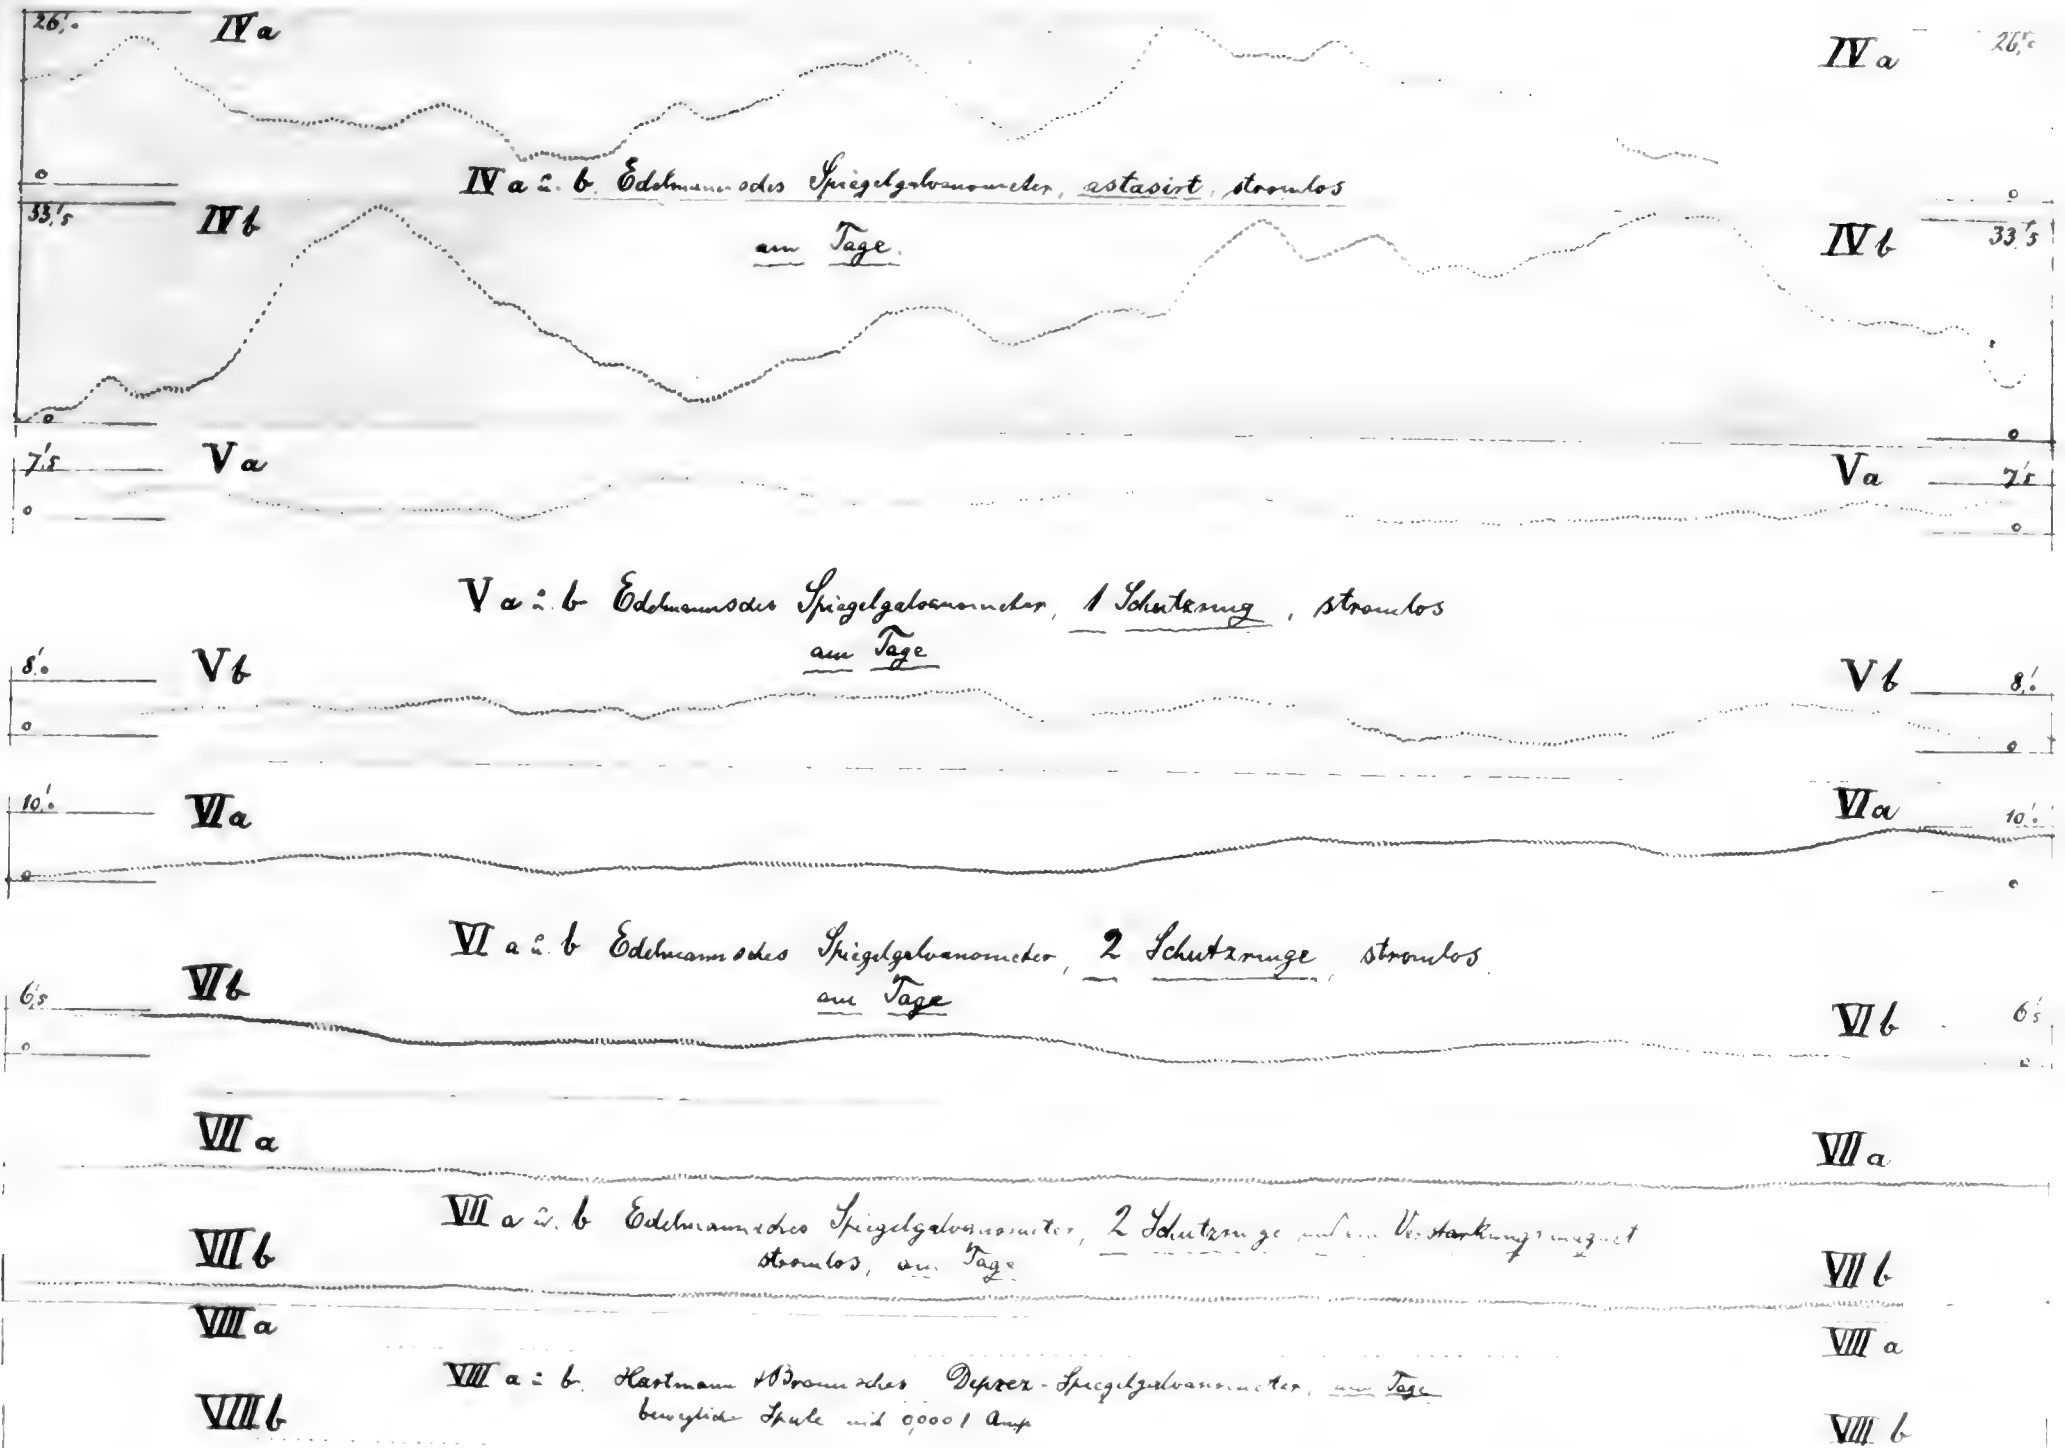 26,'0 IVa IVa 26,'0
0 0
IV a u. b. Edelmannsches Spiegelgalvanometer, astasirt, stromlos
33,'5 IVb IVb 33,'5
am Tage.
0 0
7,'5 Va Va 7,'5
0 0
V a u. b Edelmannsches Spiegelgalvanometer, 1 Schutzring, stromlos
am Tage
8,'0 Vb Vb 8,'0
0 0
10,'0 VIa VIa 10,'0
0 0
VI a u. b Edelmannsches Spiegelgalvanometer, 2 Schutzringe, stromlos
am Tage
6,'5 VIb VIb 6,'5
0 0
VII a VII a
VII a u. b Edelmannsches Spiegelgalvanometer, 2 Schutzringe und ein Verstärkungsmagnet
stromlos, am Tage
VII b VII b
VIII a VIII a
VIII a u. b. Hartmann & Braunsches Deprez-Spiegelgalvanometer, am Tage
bewegliche Spule mit 0,0001 Amp
VIII b VIII b